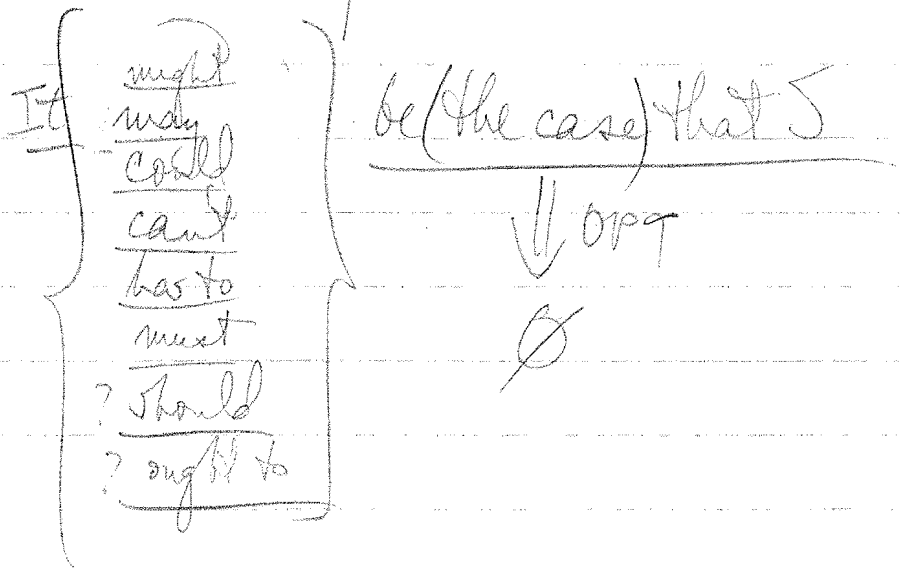 It
might
may
could
can't
has to
must
? should
? ought to
be (the case) that S
⇓ opq
Ø